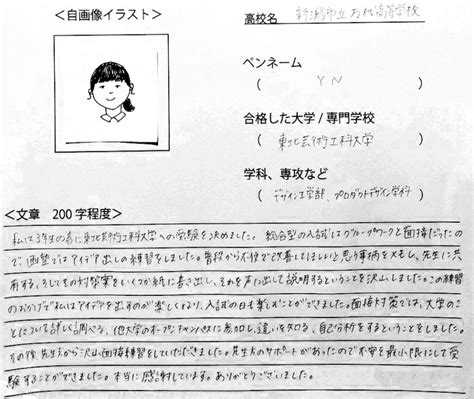 <自画像イラスト>
高校名 新潟市立万代高等学校
ペンネーム
( YN )
合格した大学/専門学校
( 東北芸術工科大学 )
学科、専攻など
( デザイン工学部、プロダクトデザイン学科 )
<文章 200字程度>
私は3年生の春に東北芸術工科大学への受験を決めました。総合型の入試はグループワークと面接だったの
で、画塾ではアイデア出しの練習をしました。普段から不便で改善してほしいと思う事柄をメモし、先生に共
有する、そしてその対策案をいくつか紙に書き出し、それを声に出して説明するということを沢山しました。この練習
のおかげで私はアイデアを出すのが楽しくなり、入試の日も楽しむことができました。面接対策では、大学のこ
とについて詳しく調べる、他大学のオープンキャンパスに参加し、違いを知る、自己分析をするということをしました。
その後、先生方から沢山面接練習をしていただきました。先生方のサポートがあったので不安を最小限にして受
験することができました。本当に感謝しています。ありがとうございました。